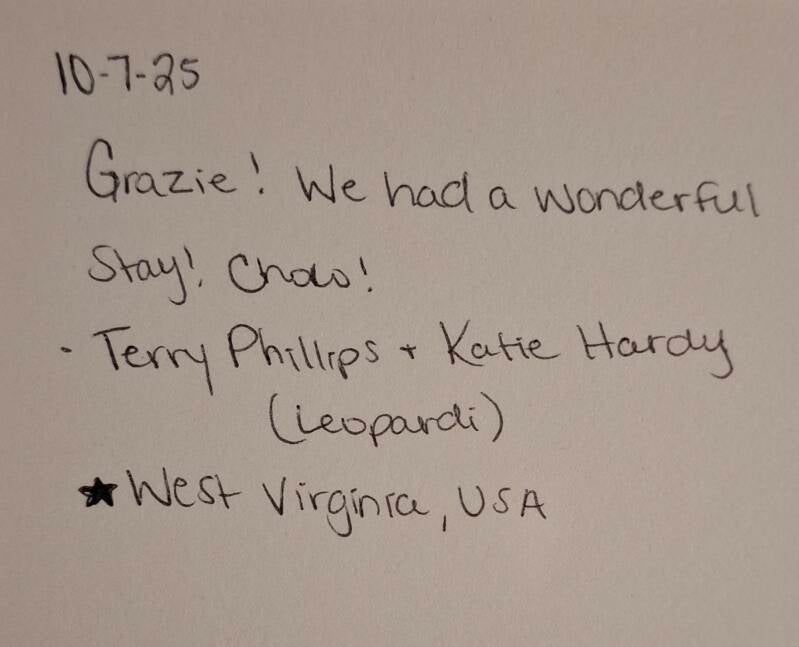 10-7-25
Grazie! We had a wonderful
Stay! Chao!
- Terry Phillips + Katie Hardy
(Leopardi)
★ West Virginia, USA